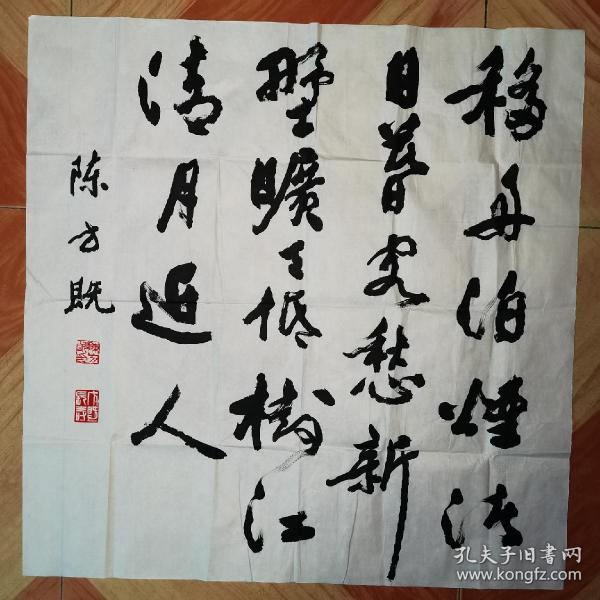 移舟泊煙渚
日暮客愁新
野曠天低樹江
清月近人
陈方既
孔夫子旧書网
www.kongfz.com